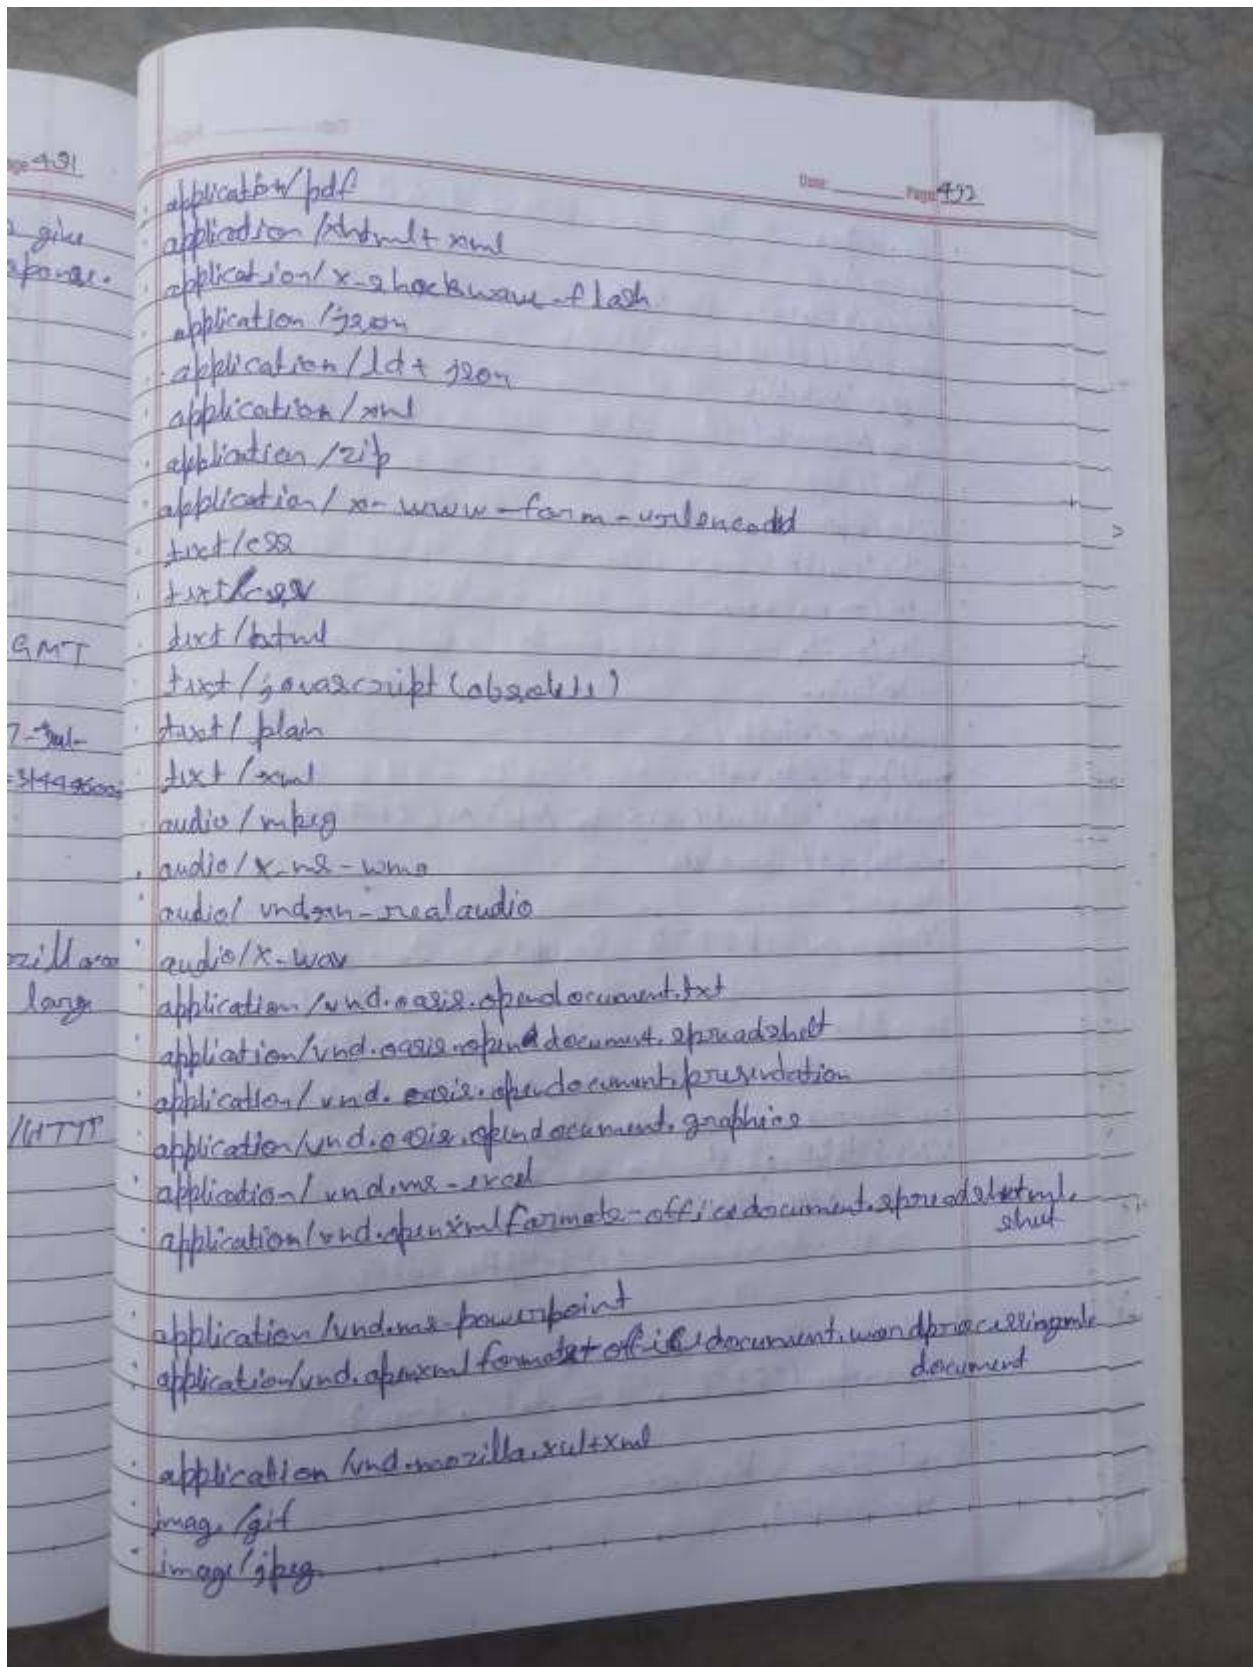 Page 431
give
sponse.
GMT
7-Jul-
zilla
lang
/HTTP
Date: Page: 432
application/pdf
application/xhtml+xml
application/x-shockwave-flash
application/json
application/ld+json
application/xml
application/zip
application/x-www-form-urlencoded
text/css
text/csv
text/html
text/javascript (obsolete)
text/plain
text/xml
audio/mpeg
audio/x-ms-wma
audio/vnd.rn-realaudio
audio/x-wav
application/vnd.oasis.opendocument.txt
application/vnd.oasis.opendocument.spreadsheet
application/vnd.oasis.opendocument.presentation
application/vnd.oasis.opendocument.graphics
application/vnd.ms-excel
application/vnd.openxmlformats-officedocument.spreadsheetml.
sheet
application/vnd.ms-powerpoint
application/vnd.openxmlformats-officedocument.wordprocessingml.
document
application/vnd.mozilla.xul+xml
image/gif
image/jpeg